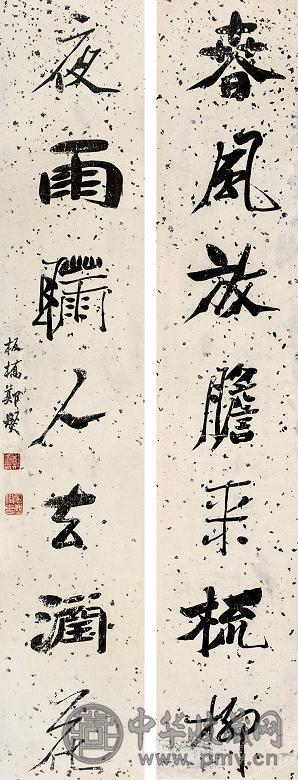 春風放膽來梳柳
夜雨瞞人去潤花
板橋鄭燮
www.pmv.cn